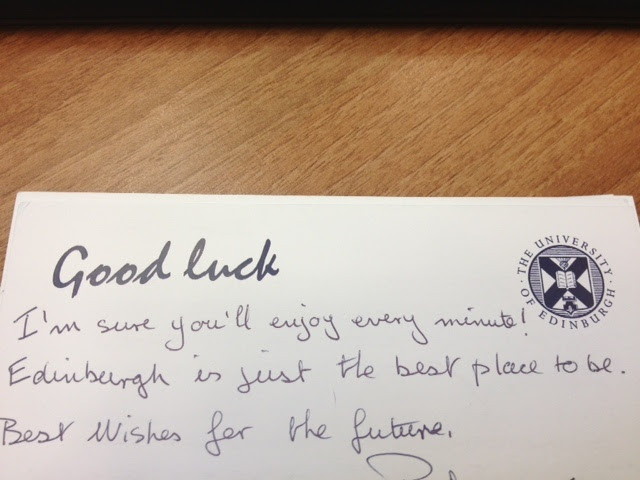 Good luck
THE UNIVERSITY OF EDINBURGH
I'm sure you'll enjoy every minute!
Edinburgh is just the best place to be.
Best Wishes for the future.